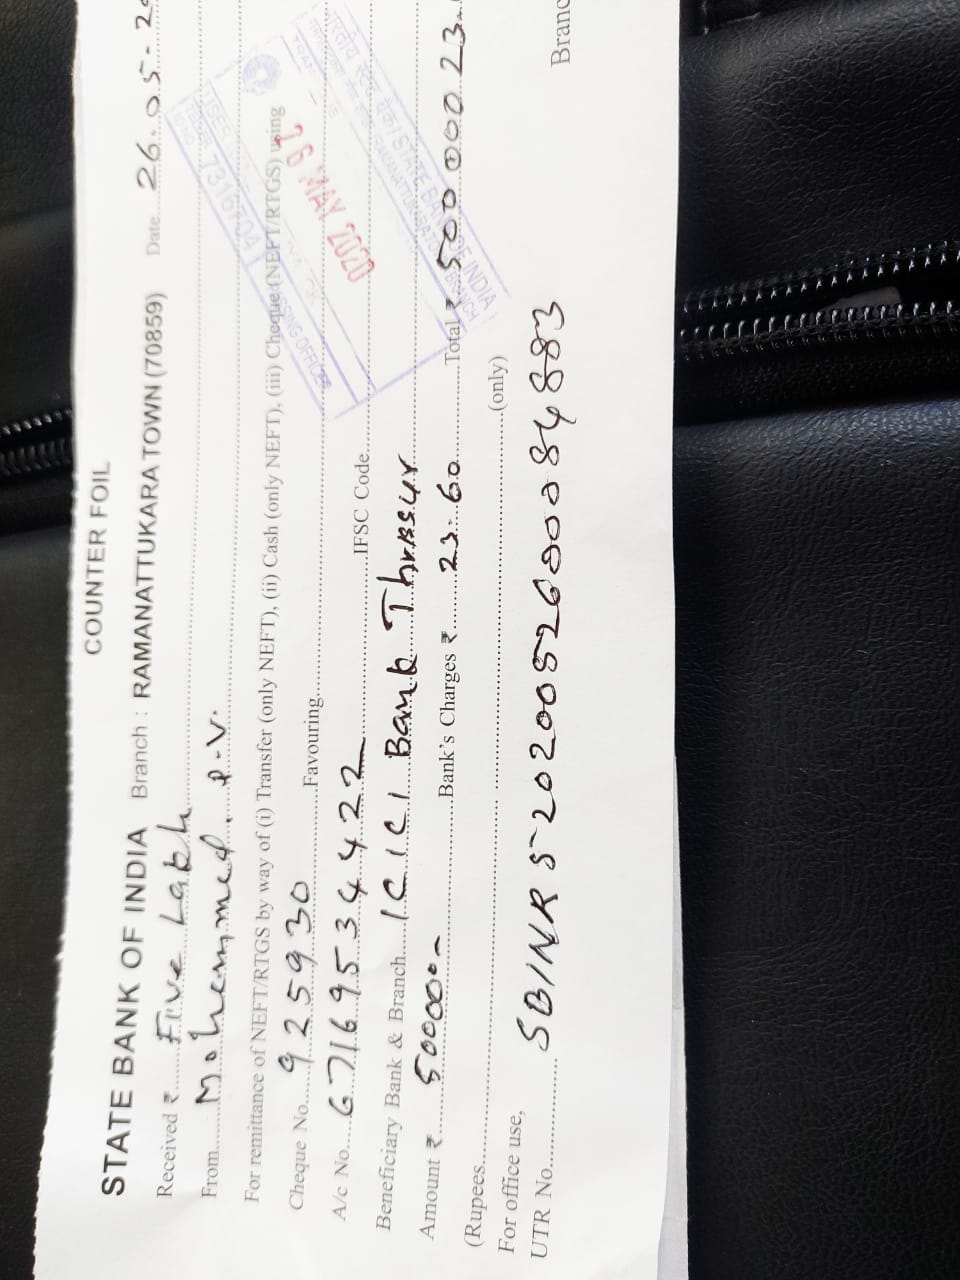 COUNTER FOIL
STATE BANK OF INDIA Branch : RAMANATTUKARA TOWN (70859) Date 26.05-20
Received ₹ Five Lakh
From Mohammed. P.V.
For remittance of NEFT/RTGS by way of (i) Transfer (only NEFT), (ii) Cash (only NEFT), (iii) Cheque (NEFT/RTGS) using
Cheque No. 925930 Favouring
A/c No. 67169534422 IFSC Code
Beneficiary Bank & Branch ICICI Bank Thrissur
Amount ₹ 500000- Bank's Charges ₹ 23-60 Total ₹ 50000023-
(Rupees (only)
For office use,
UTR No. SBINR52020052600084883 Branc
भारतीय स्टेट बैंक / STATE BANK OF INDIA
BRANCH
26 MAY 2020
USER
7316704
PASSING OFFICER